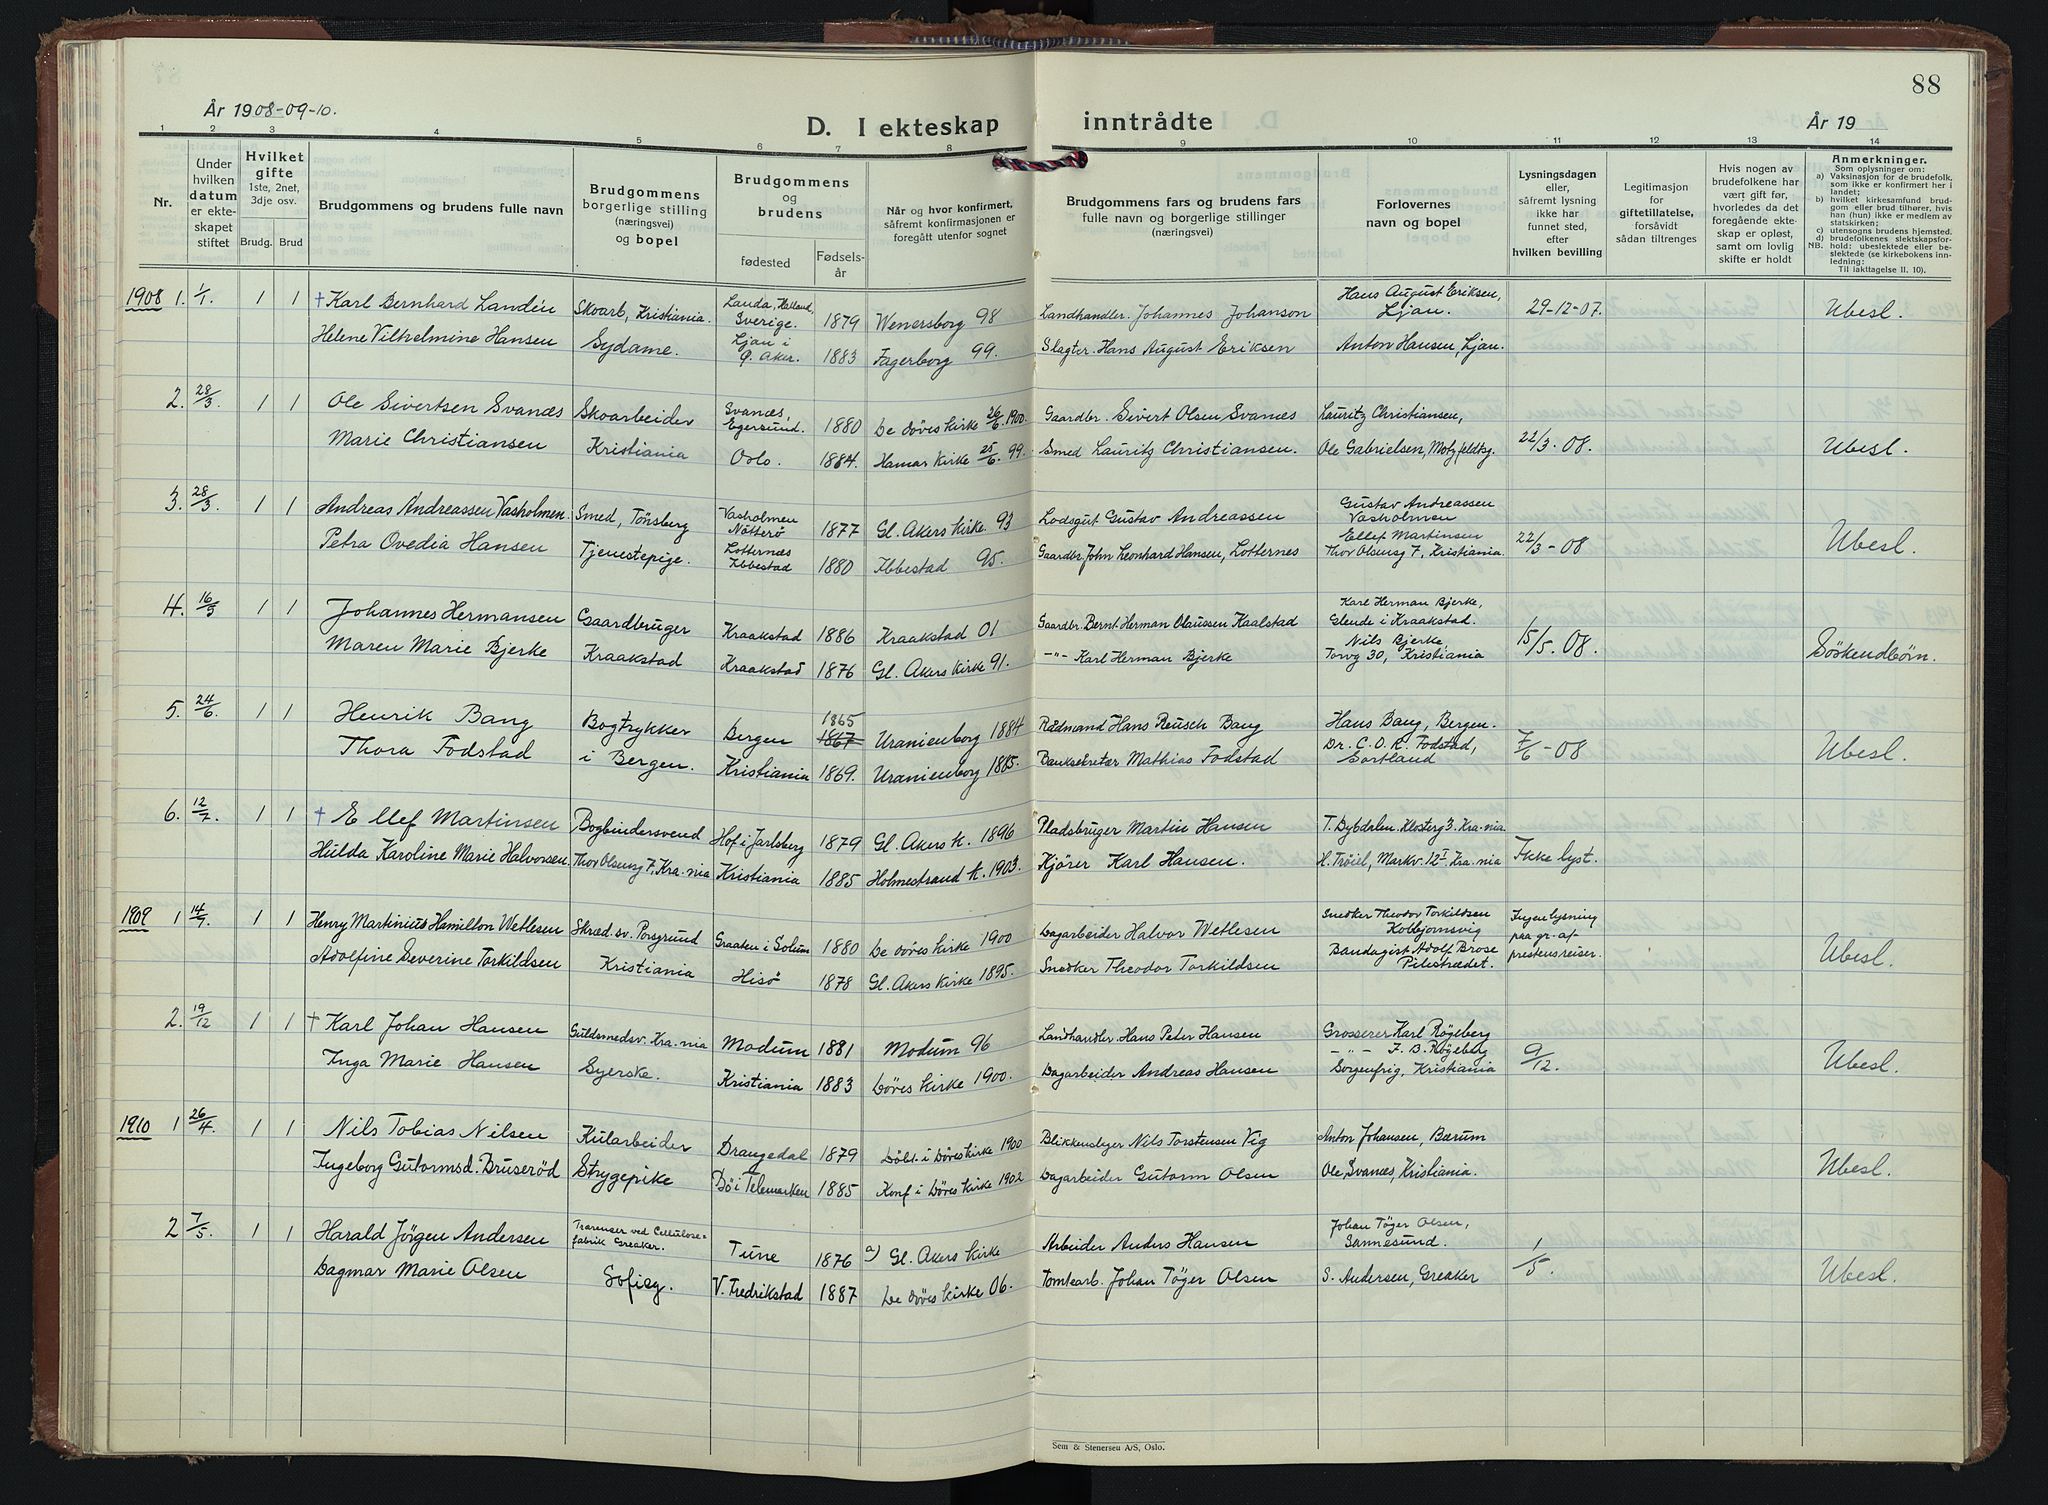 88
År 1908-09-10.
D. I ekteskap inntrådte
År 19
1 2 3 4 5 6 7 8 9 10 11 12 13 14
Nr.
Under hvilken datum er ekteskapet stiftet
Hvilket gifte 1ste, 2net, 3dje osv.
Brudg. Brud
Brudgommens og brudens fulle navn
Brudgommens borgerlige stilling (næringsvei) og bopel
Brudgommens og brudens
fødested
Fødselsår
Når og hvor konfirmert, såfremt konfirmasjonen er foregått utenfor sognet
Brudgommens fars og brudens fars fulle navn og borgerlige stillinger (næringsvei)
Forlovernes navn og bopel
Lysningsdagen eller, såfremt lysning ikke har funnet sted, efter hvilken bevilling
Legitimasjon for giftetillatelse, forsåvidt sådan tiltrenges
Hvis nogen av brudefolkene har vært gift før, hvorledes da det foregående ekteskap er opløst, samt om lovlig skifte er holdt
Anmerkninger.
Som oplysninger om:
a) Vaksinasjon for de brudefolk, som ikke er konfirmert her i landet;
b) hvilket kirkesamfund brudgom eller brud tilhører, hvis han (hun) ikke er medlem av statskirken;
c) utensogns brudens hjemsted.
d) brudefolkenes slektskapsforhold: ubeslektede eller beslektede (se kirkebokens innledning:
NB.
Til iakttagelse II. 10).
1908 1. 1/1 1 1 + Karl Bernhard Landén Skoarb, Kristiania. Landa, Halland, Sverige. 1879 Wenersborg 98 Landhandler. Johannes Johanson Hans August Eriksen, Ljan. 29-12-07. Ubesl.
Helene Vilhelmine Hansen Sydame. Ljan i Ø. Aker. 1883 Fagerborg 99. Slagter. Hans August Eriksen Anton Hansen, Ljan.
2. 28/3. 1 1 Ole Sivertsen Svanæs Skoarbeider Svanæs, Egersund. 1880 De döves kirke 26/6.1900. Gaardbr. Sivert Olsen Svanæs Lauritz Christiansen,
Marie Christiansen Kristiania Oslo. 1884. Hamar Kirke 25/6. 99. Smed Lauritz Christiansen. Ole Gabrielsen, Motzfeldtg. 22/3-08. Ubesl.
3. 28/3. 1 1 Andreas Andreassen Vasholmen. Smed, Tönsberg Vasholmen Nötterö 1877 Gl. Akers Kirke. 93 Lodsgut Gustav Andreassen Gustav Andreassen Vasholmen
Petra Ovedia Hansen Tjenestepige. Lotternæs Ibbestad 1880 Ibbestad 95. Gaardbr. John Leonhard Hansen, Lotternes Ellef Martinsen Thor Olsensg 7, Kristiania. 22/3-08 Ubesl.
4. 16/5 1 1 Johannes Hermansen Gaardbruger Kraakstad 1886 Kraakstad 01 Gaardbr. Bernt Herman Olaussen Kaalstad Karl Herman Bjerke, Glende i Kraakstad.
Maren Marie Bjerke Kraakstad Kraakstad 1876 Gl. Akers Kirke 91. -"- Karl Herman Bjerke Nils Bjerke, Torvg 30, Kristiania 15/5. 08. Söskendbörn.
5. 24/6. 1 1 Henrik Bang Bogtrykker Bergen 1865 1867 Uranienborg 1884 Rådmand Hans Reusch Bang Hans Bang, Bergen.
Thora Fodstad i Bergen. Kristiania 1869. Uranienborg 1885. Banksekretær Mathias Fodstad Dr. C.O.R. Fodstad, Sortland 7/6-08 Ubesl.
6. 12/7. 1 1 + Ellef Martinsen Bogbindersvend Hof i Jarlsberg 1879 Gl. Akers k. 1896 Pladsbruger Martin Hansen T. Dybdalen. Klosterg 3. Kra.nia.
Hulda Karoline Marie Halvorsen. Thor Olsensg 7, Kra.nia Kristiania 1885 Holmestrand k. 1903. Kjörer Karl Hansen. H. Tröiel, Markv. 12 I. Kra.nia Ikke lyst.
1909 1 14/7. 1 1 Henry Martinius Hamilton Wetlesen Skræd.sv. Porsgrund Graaten i Solum 1880 De döves kirke 1900 Dagarbeider Halvor Wetlesen Snedker Theodor Torkildsen Kolbjornsvig Ingen lysning paa gr. af prestens reiser.
Adolfine Severine Torkildsen Kristiania Hisö 1878 Gl. Akers Kirke 1895. Snedker Theodor Torkildsen Bandagist Adolf Brose Pilestrædet. Ubesl.
2. 19/12 1 1 + Karl Johan Hansen Guldsmedsv. Kra.nia Modum 1881 Modum 96 Landhandler. Hans Peter Hansen Grosserer Karl Røgeberg
Inga Marie Hansen Syerske. Kristiania 1883 Döves kirke 1900. Dagarbeider Andreas Hansen -"- F. B. Røgeberg Sorgenfrig, Kristiania 9/12. Ubesl.
1910 1 26/4. 1 1 Nils Tobias Nilsen Kularbeider Drangedal 1879 Döbt. i Döves kirke 1900 Blikkenslager Nils Torstensen Vig Anton Johansen, Bærum
Ingeborg Gutormsd. Bruseröd Strygepike Bö i Telemarken 1885 Konf i Döves kirke 1902 Dagarbeider Gutorm Olsen Ole Svanæs, Kristiania. Ubesl.
2 7/5. 1 1 Harald Jörgen Andersen Tvarenser ved Cellulosefabrik Greaker. Tune 1876 a) Gl. Akers kirke Arbeider Anders Hansen Johan Töger Olsen, Sannesund.
Dagmar Marie Olsen Sofisg. V. Fredrikstad 1887 De döves kirke 06. Tomtearb. Johan Töger Olsen S. Andersen, Greaker 1/5. Ubesl.
Sem & Stenersen A/S, Oslo.